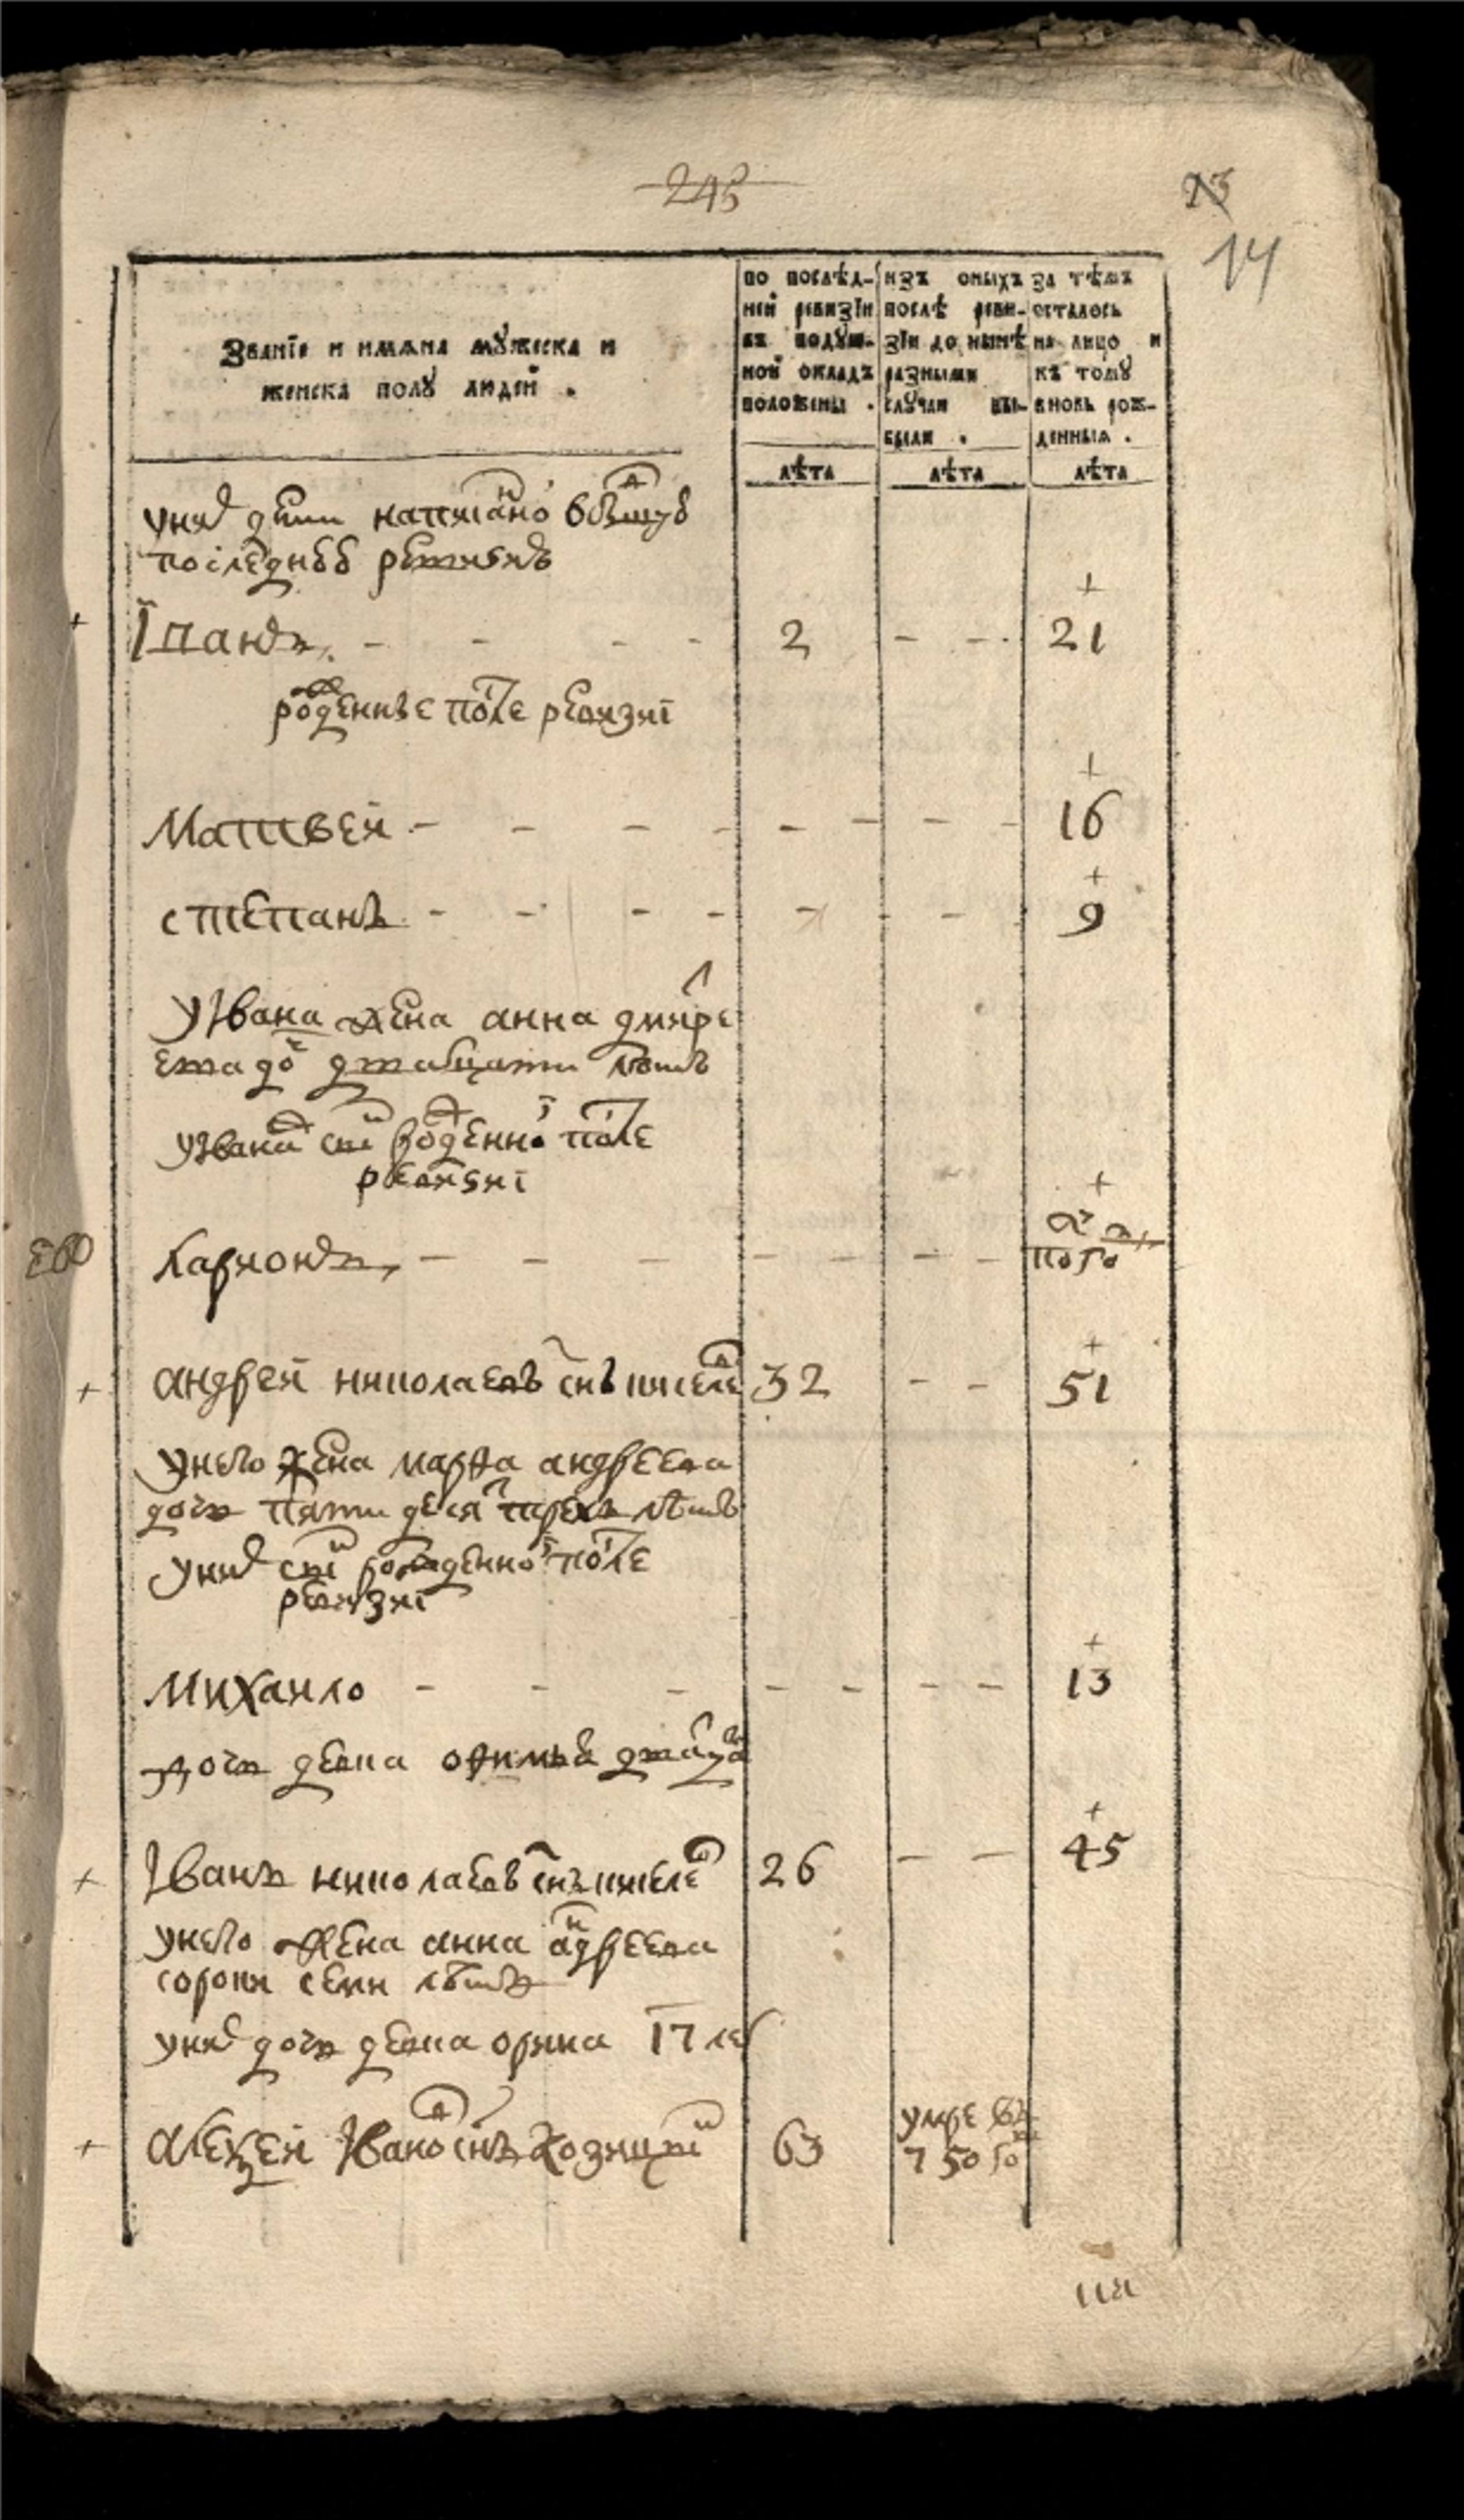 245
13
14
Званїе и имѧна мꙋжеска и
женска полꙋ людей .
по послѣд-
ней ревизїи
въ подꙋш-
ной окладъ
положены .
изъ оныхъ
послѣ реви-
зїи до нынѣ
разными
слꙋчаи вы-
были .
за тѣмъ
осталось
на лицо и
къ томꙋ
вновь рож-
денныѧ .
лѣта
лѣта
лѣта
уних дети написано
последнеѣ ревизиѣ
Іванъ - - - - 2 - - 21
роденные после ревизиї
Матвей - - - - - - - - 16
степанъ - - - - - - - 9
у Ивана жена анна
дватцати летъ
у Ивана сн роденной после
ревизиї
Ларионъ - - - - - - -
пого
андрей николаевъ снъ киселе 32 - - 51
унего жена марфа андреева
дочь пяти деся трехъ летъ
уних сн рожденной после
ревизиї
михаило - - - - - - - 13
дочь девка офимья
Іванъ николаевъ снъ киселе 26 - - 45
унего жена анна андреева
сорока семи летъ
уних дочь девка орина 17 ле
алеѯей Ивано снъ 63 умре въ
750 го